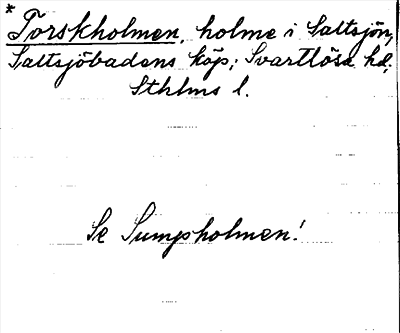 * Torskholmen, holme i Saltsjön,
Saltsjöbadens köp; Svartlösa hd,
Sthlms l.
Se Sumpholmen!